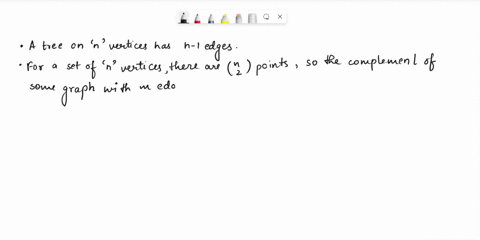 • A tree on 'n' vertices has n-1 edges.
• For a set of 'n' vertices, there are (n 2) points, so the complement of
some graph with m edo